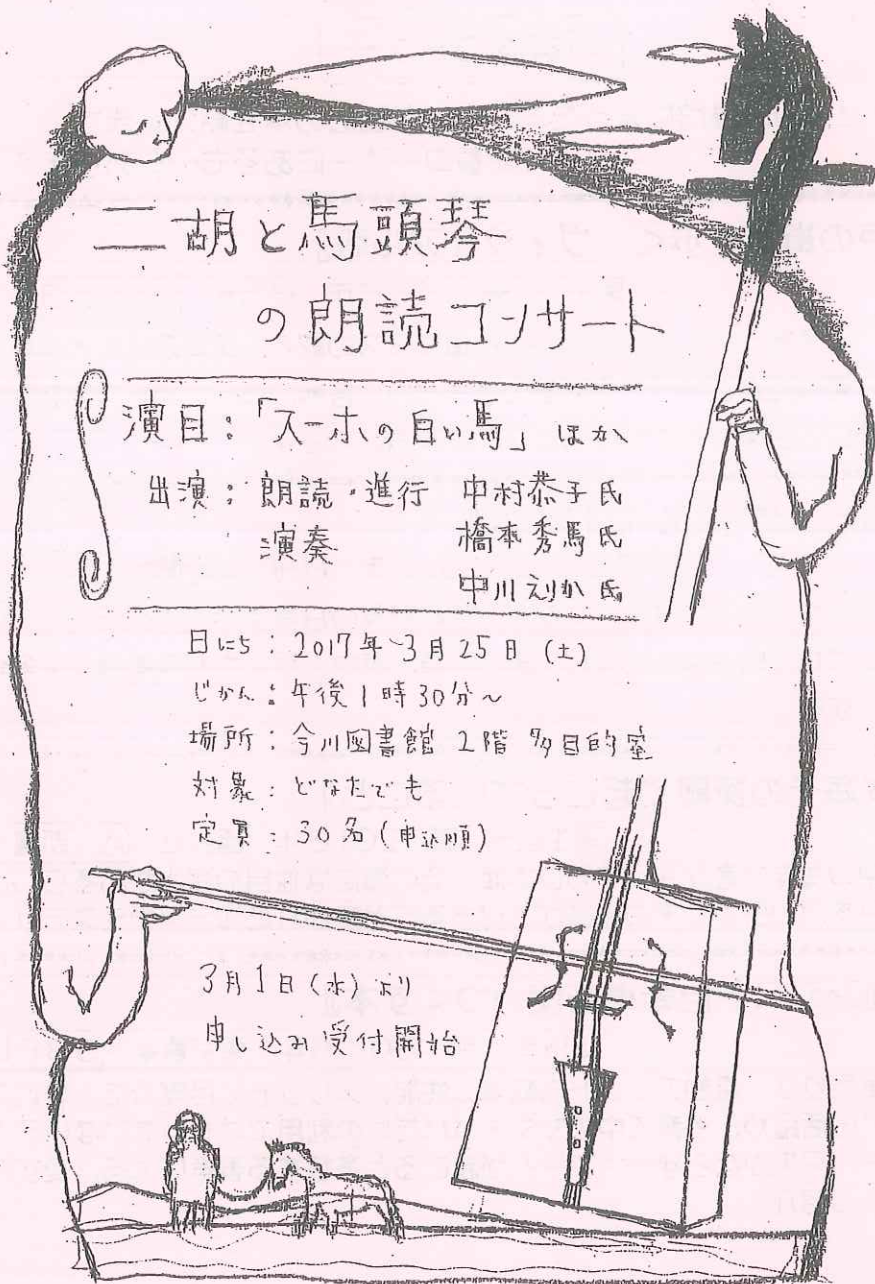 二胡と馬頭琴
の朗読コンサート
演目：「スーホの白い馬」ほか
出演：朗読・進行 中村恭子氏
演奏 橋本秀馬氏
中川えりか氏
日にち：2017年3月25日（土）
じかん：午後1時30分～
場所：今川図書館 2階 多目的室
対象：どなたでも
定員：30名（申込順）
3月1日（水）より
申し込み受付開始